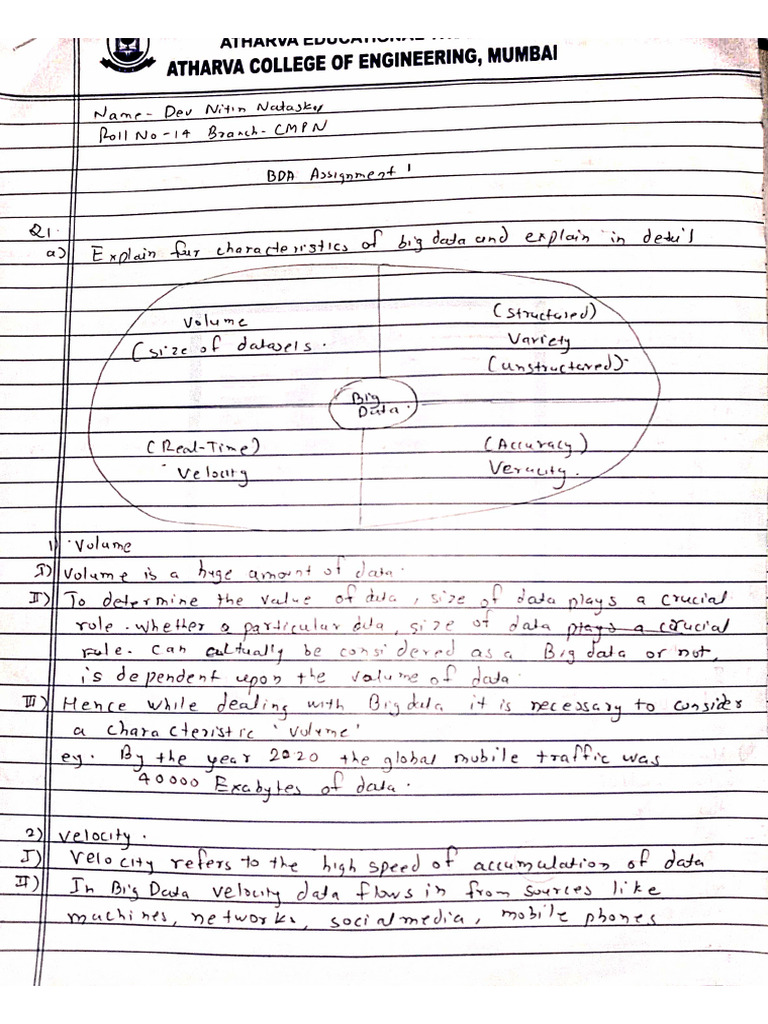 ATHARVA EDUCATIONAL
ATHARVA COLLEGE OF ENGINEERING, MUMBAI
Name - Dev Nitin Nataskar
Roll No - 14 Branch - CMPN
BDA Assignment 1
Q1.
a) Explain four characteristics of big data and explain in detail
Volume
(size of datasets.
(Structured)
Variety
(unstructured).
Big
Data.
(Real-Time)
Velocity
(Accuracy)
Veracity.
1) Volume
I) Volume is a huge amount of data.
II) To determine the value of data, size of data plays a crucial
role. Whether a particular data, size of data plays a crucial
rule. Can cultually be considered as a Big data or not,
is dependent upon the volume of data.
III) Hence while dealing with Big data it is necessary to consider
a characteristic 'volume'
eg. By the year 2020 the global mobile traffic was
40000 Exabytes of data.
2) velocity.
I) Velocity refers to the high speed of accumulation of data
II) In Big Data velocity data flows in from sources like
machines, networks, social media, mobile phones